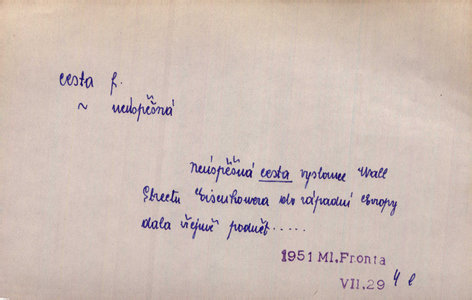 cesta f.
~ neúspěšná
Neúspěšná cesta vyslance Wall
Streetu Eisenhowera do západní Evropy
dala zřejmě podnět.....
1951 Ml.Fronta
VII.29 4